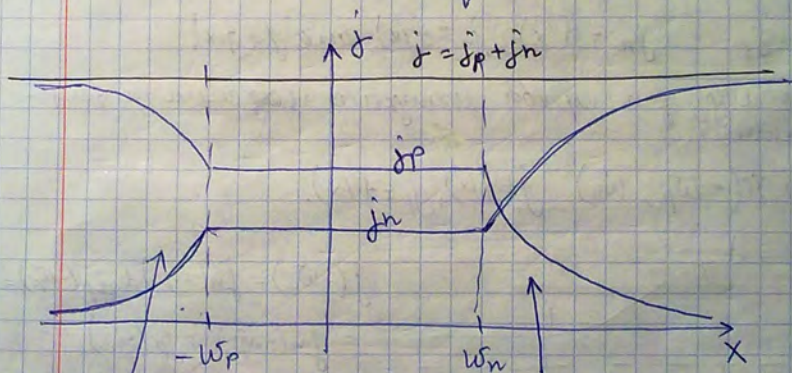 j j = jp + jn
jp
jn
-Wp Wn X